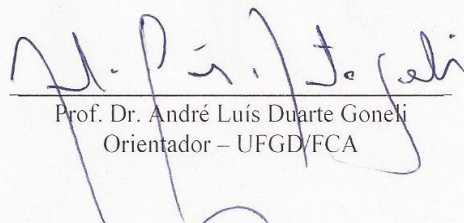 Prof. Dr. André Luís Duarte Goneli
Orientador – UFGD/FCA